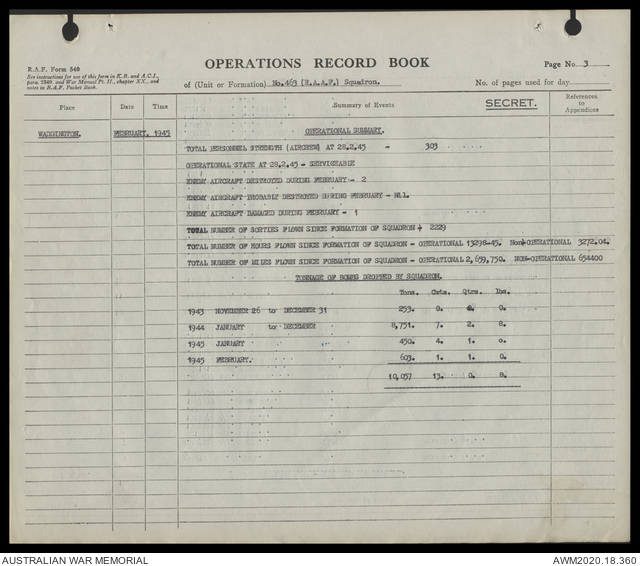 R.A.F. Form 540
See instructions for use of this form in K.R. and A.C.I.,
para. 2349 and War Manual Pt. II., chapter XX., and
notes in R.A.F. Pocket Book.
OPERATIONS RECORD BOOK
Page No. 3
of (Unit or Formation) No.463 (R.A.A.F.) Squadron.
No. of pages used for day
Place Date Time Summary of Events SECRET. References to Appendices
WADDINGTON. FEBRUARY, 1945 OPERATIONAL SUMMARY.
TOTAL PERSONNEL STRENGTH (AIRCREW) AT 28.2.45 - 303
OPERATIONAL STATE AT 28.2.45 - SERVICEABLE
ENEMY AIRCRAFT DESTROYED DURING FEBRUARY - 2
ENEMY AIRCRAFT PROBABLY DESTROYED DURING FEBRUARY - Nil.
ENEMY AIRCRAFT DAMAGED DURING FEBRUARY - 1
TOTAL NUMBER OF SORTIES FLOWN SINCE FORMATION OF SQUADRON - 2229
TOTAL NUMBER OF HOURS FLOWN SINCE FORMATION OF SQUADRON - OPERATIONAL 13298-45. Non-OPERATIONAL 3272.04.
TOTAL NUMBER OF MILES FLOWN SINCE FORMATION OF SQUADRON - OPERATIONAL 2,659,750. NON-OPERATIONAL 654400
TONNAGE OF BOMBS DROPPED BY SQUADRON.
Tons. Cwts. Qtrs. lbs.
1943 NOVEMBER 26 to DECEMBER 31 253. 0. 0. 0.
1944 JANUARY to DECEMBER 8,751. 7. 2. 8.
1945 JANUARY 450. 4. 1. 0.
1945 FEBRUARY. 603. 1. 1. 0.
10,057 13. 0. 8.
AUSTRALIAN WAR MEMORIAL
AWM2020.18.360